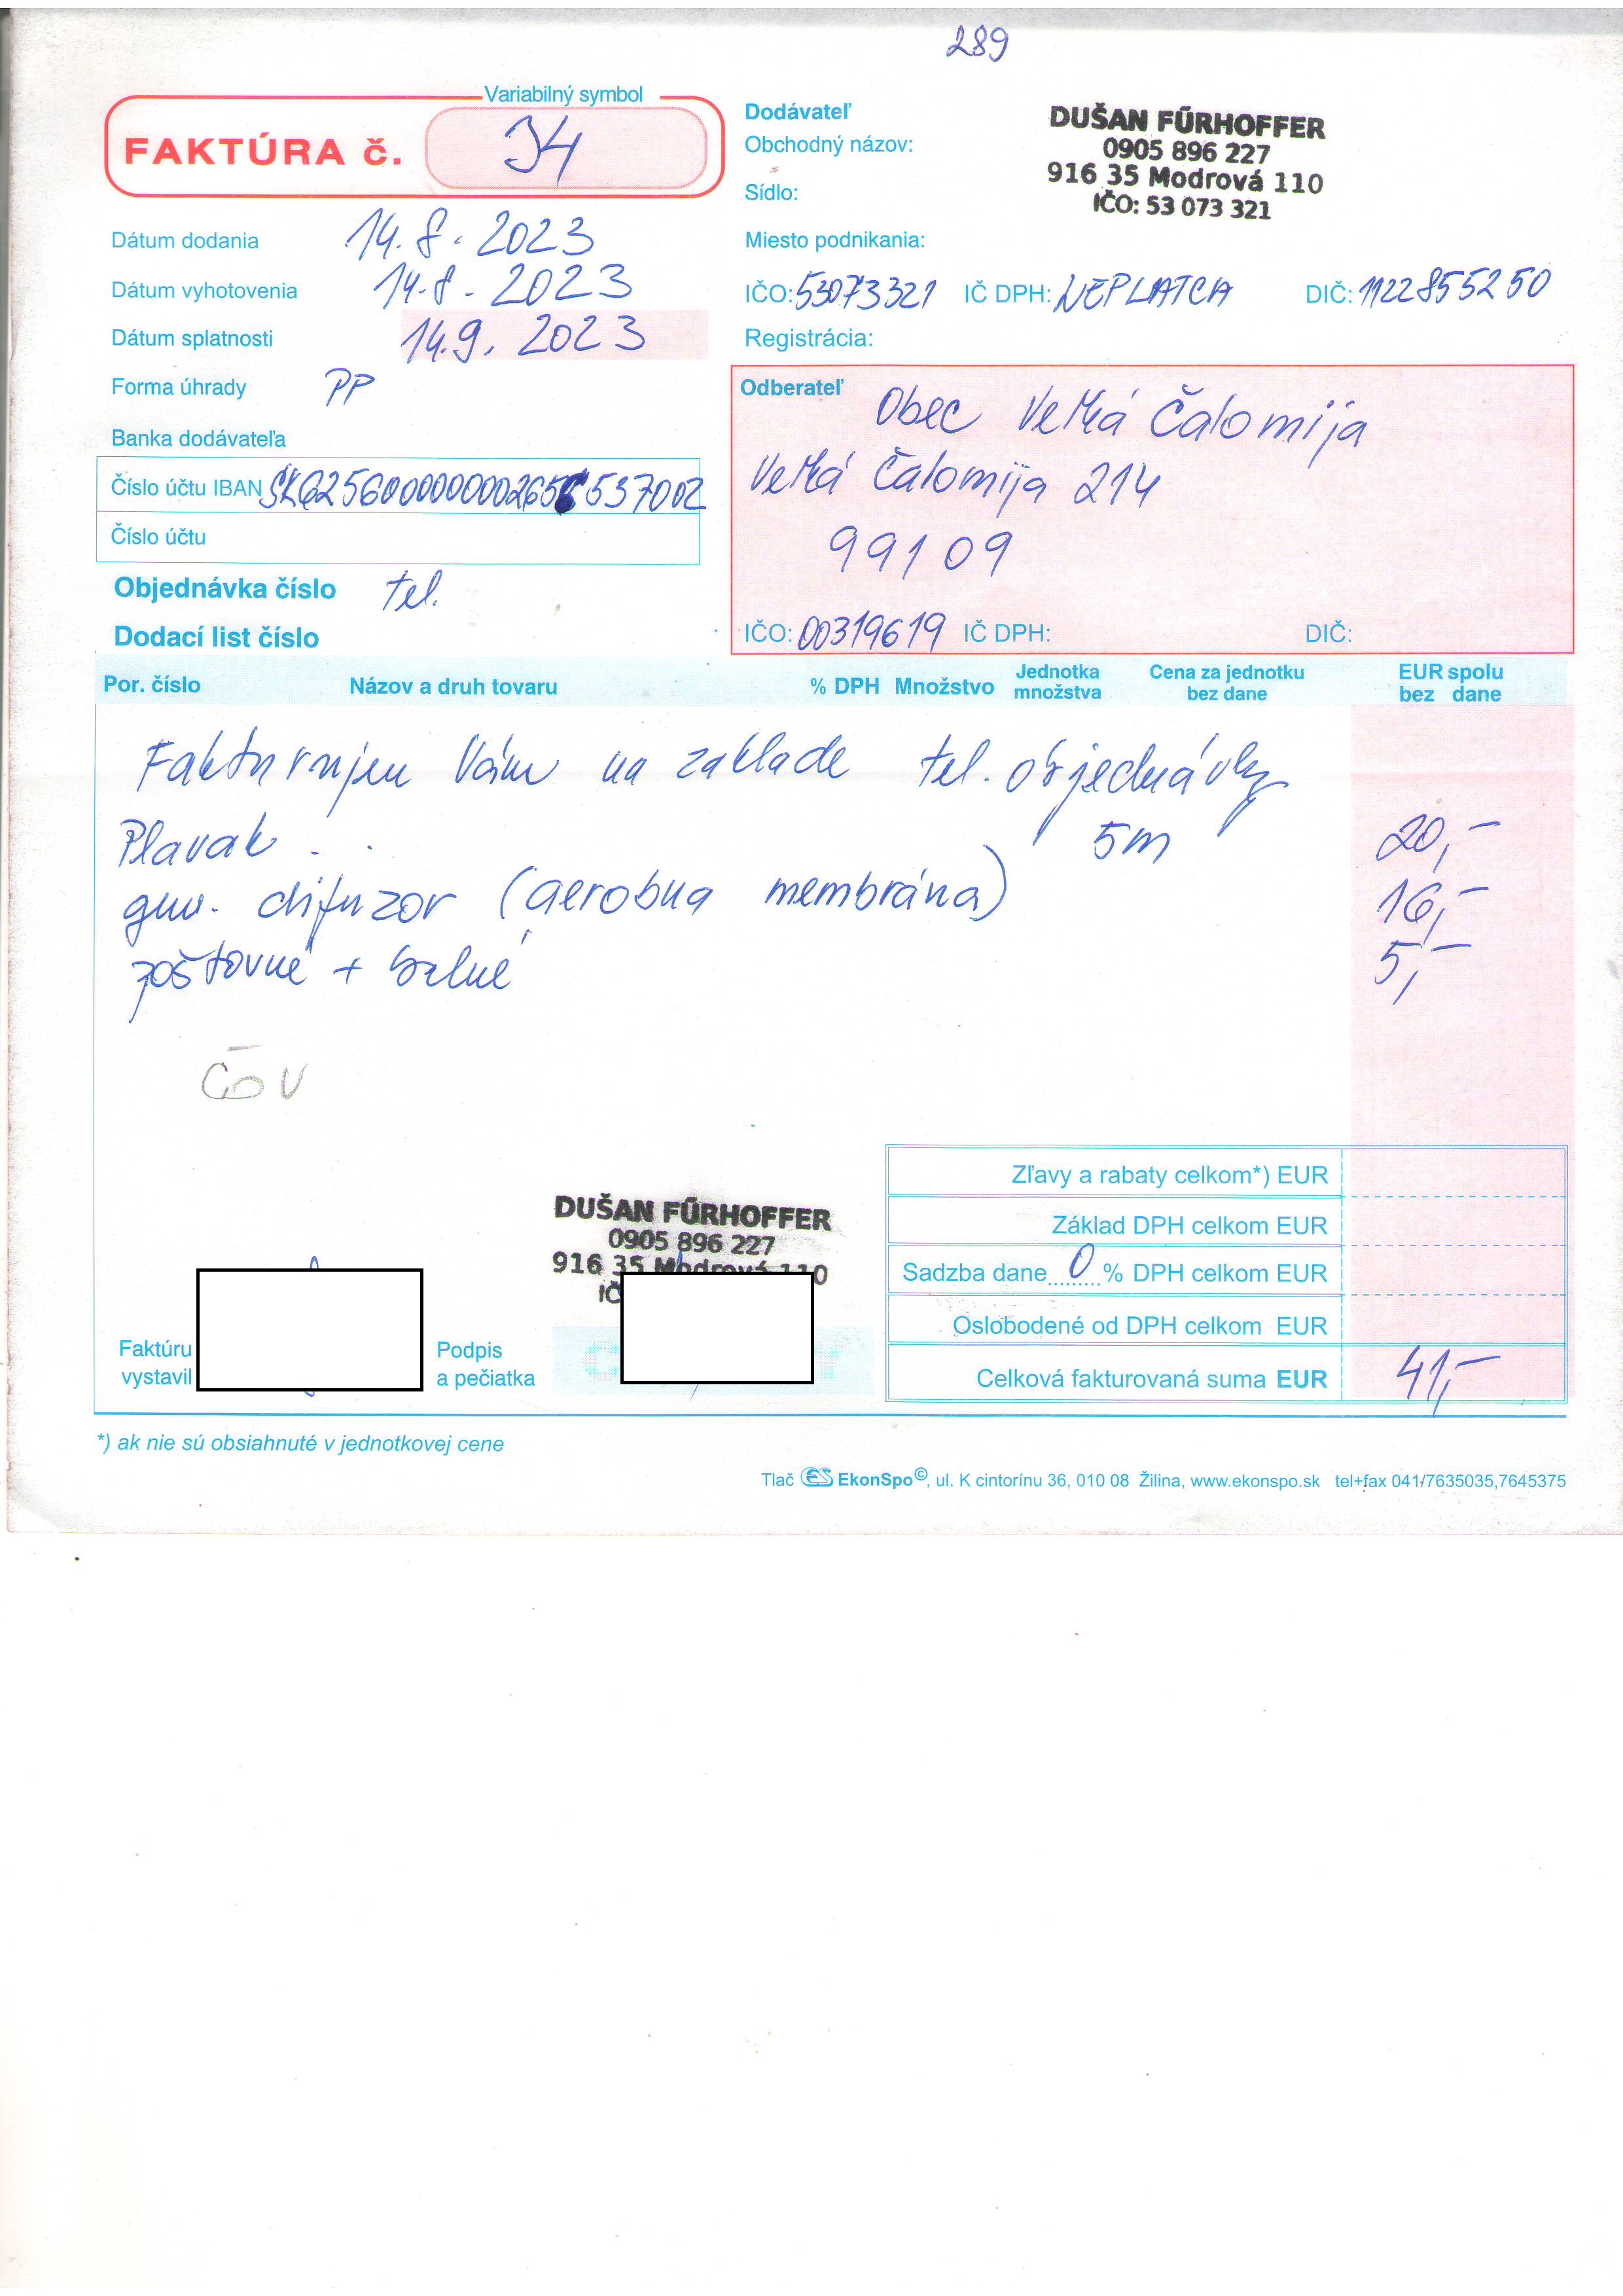 289
Variabilný symbol
FAKTÚRA č. 34
Dodávateľ
Obchodný názov:
Sídlo:
Miesto podnikania:
DUŠAN FŰRHOFFER
0905 896 227
916 35 Modrová 110
IČO: 53 073 321
IČO: 53073321 IČ DPH: NEPLATCA DIČ: 1122855250
Registrácia:
Dátum dodania 14.8.2023
Dátum vyhotovenia 14.8.2023
Dátum splatnosti 14.9.2023
Forma úhrady PP
Banka dodávateľa
Číslo účtu IBAN
Číslo účtu
Objednávka číslo tel.
Dodací list číslo
Odberateľ Obec Veľká Čalomija
Veľká Čalomija 214
99109
IČO: 00319619 IČ DPH: DIČ:
Por. číslo Názov a druh tovaru % DPH Množstvo Jednotka množstva Cena za jednotku bez dane EUR spolu bez dane
Fakturujem Vám na zaklade tel. objednávky
Plavak 5m 20,-
gum. difuzor (aerobna membrána) 16,-
poštovné + balné 5,-
ČOV
Zľavy a rabaty celkom*) EUR
Základ DPH celkom EUR
Sadzba dane 0 % DPH celkom EUR
Oslobodené od DPH celkom EUR
Celková fakturovaná suma EUR 41,-
DUŠAN FŰRHOFFER
0905 896 227
916 35 Modrová 110
IČ
Faktúru vystavil
Podpis a pečiatka
*) ak nie sú obsiahnuté v jednotkovej cene
Tlač ES EkonSpo©, ul. K cintorínu 36, 010 08 Žilina, www.ekonspo.sk tel+fax 041/7635035,7645375